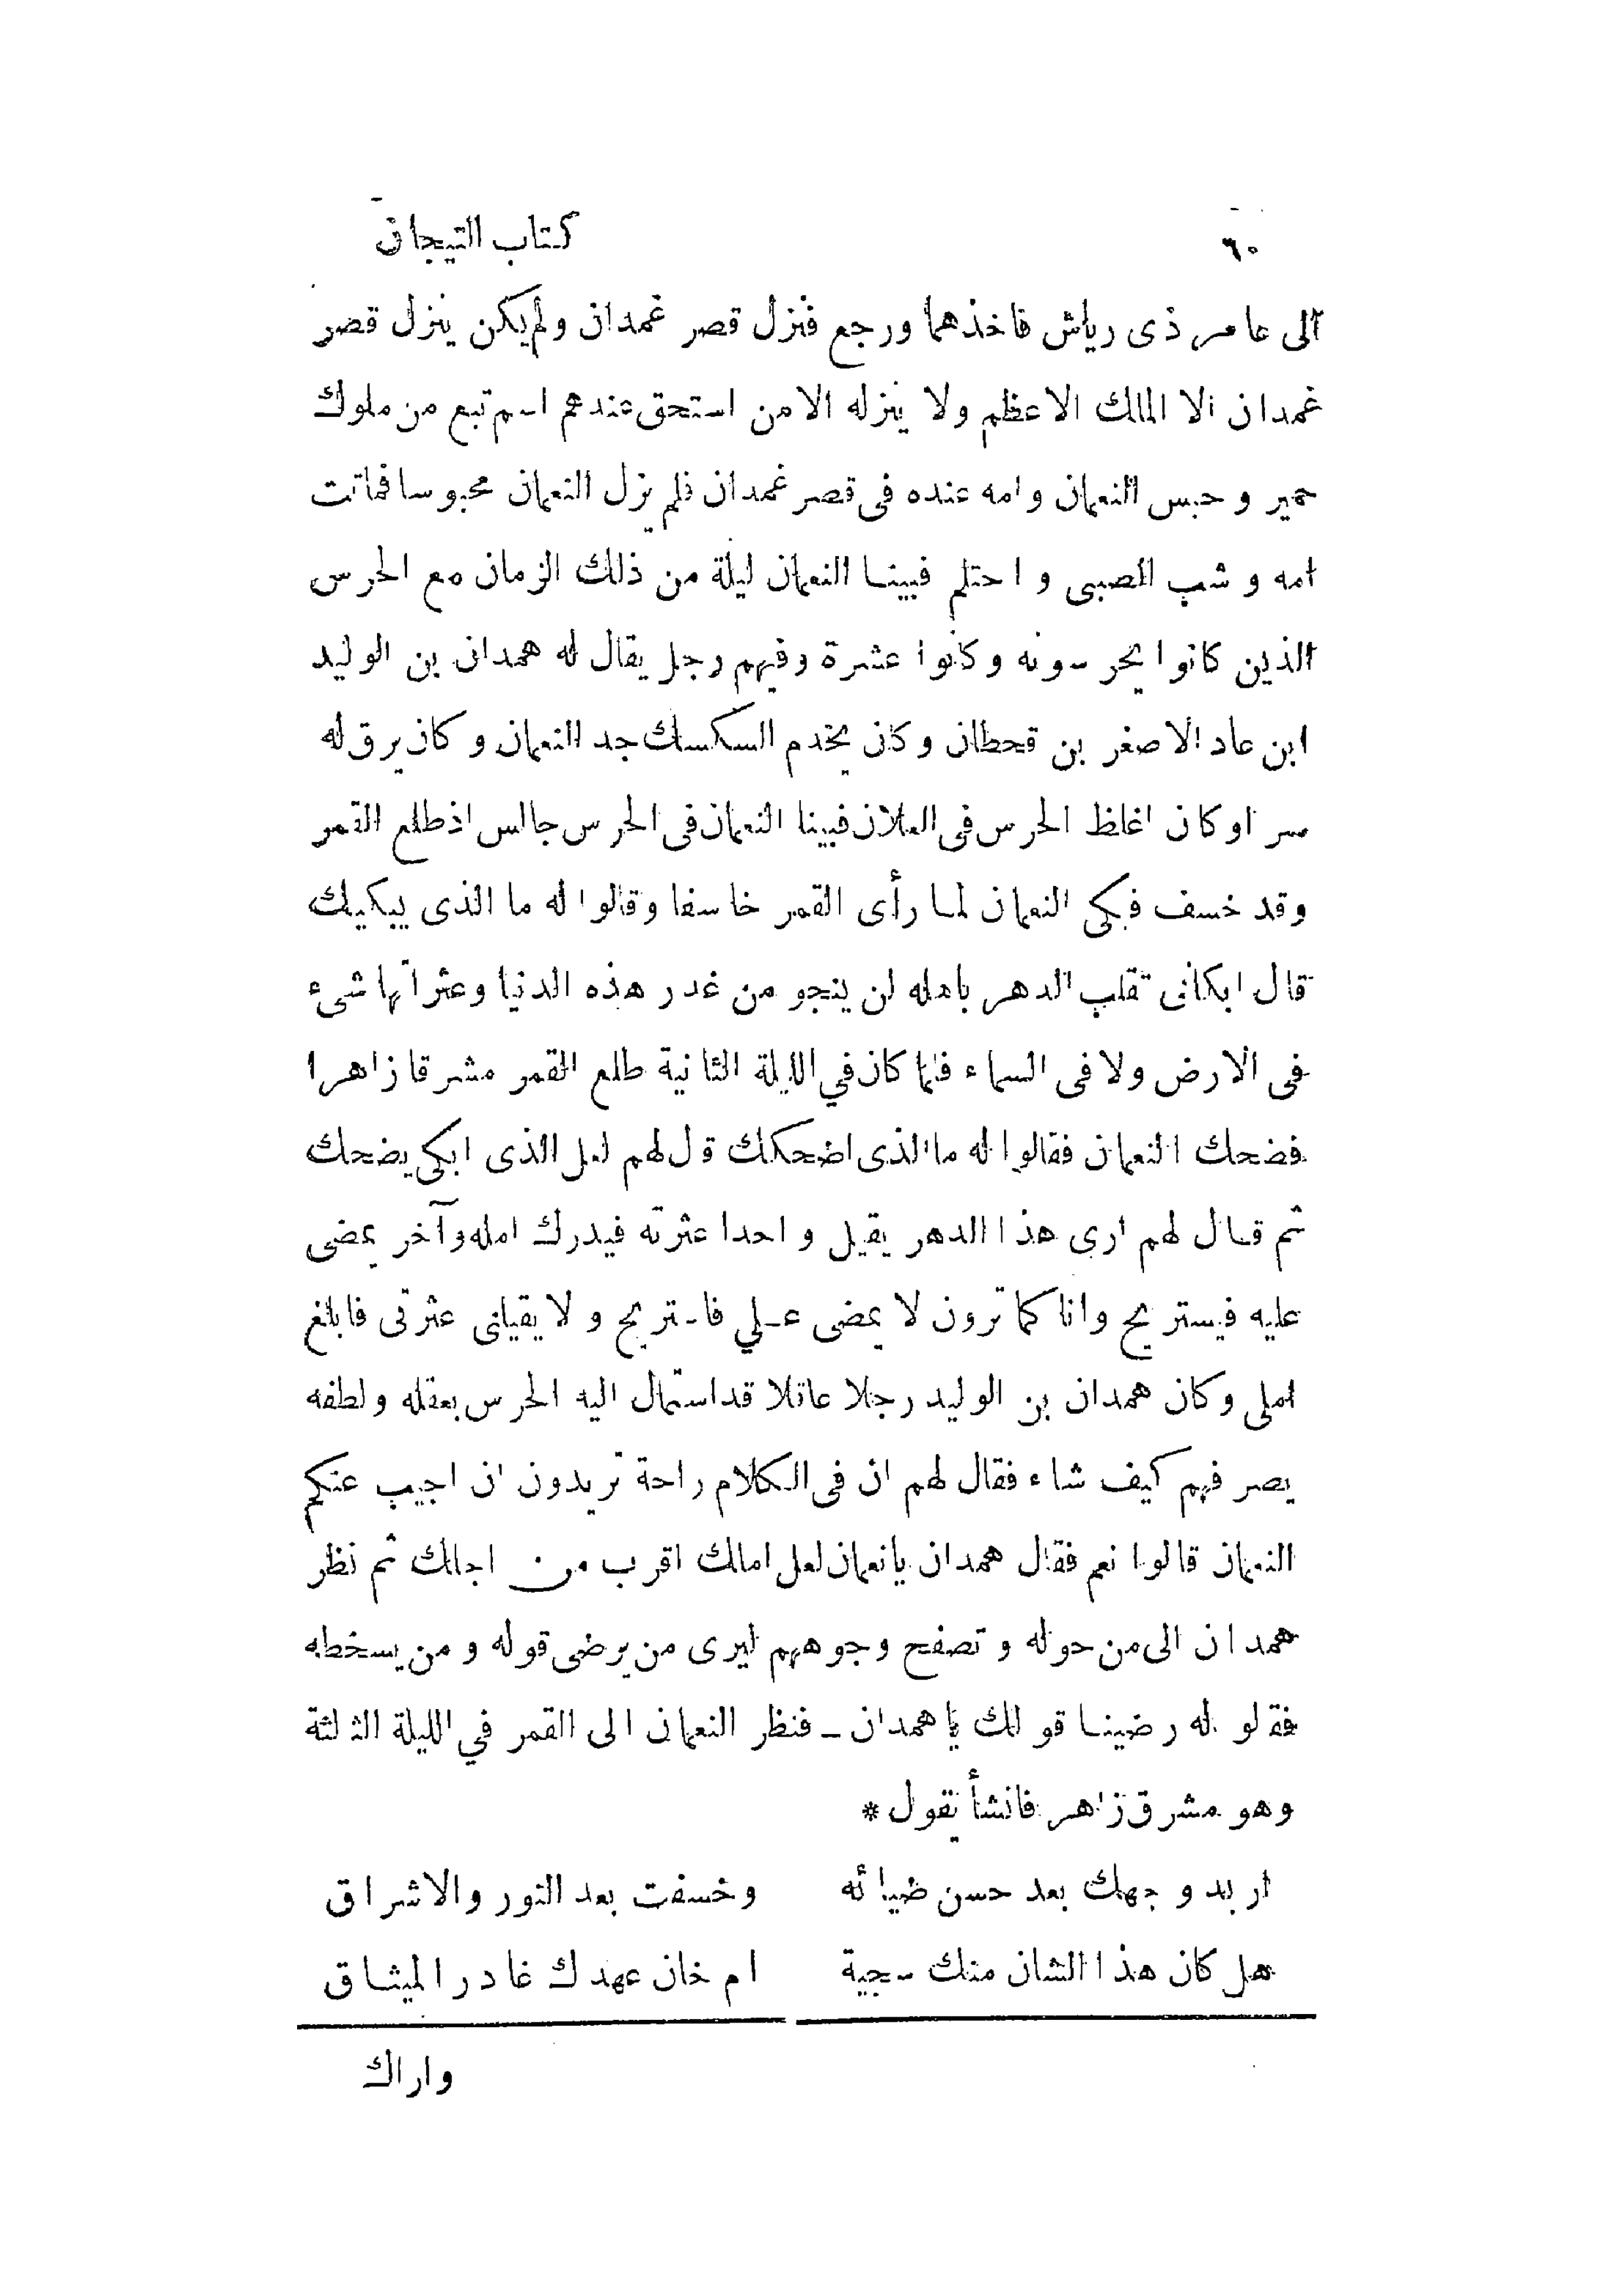 ٦٠ كتاب التيجان
الى عامر ذى رياش فاخذهما ورجع فنزل قصر غمدان ولم يكن ينزل قصر
غمدان الا الملك الاعظم ولا ينزله الا من استحق عندهم اسم تبع من ملوك
حمير و حبس النعمان و امه عنده فى قصر غمدان فلم يزل النعمان محبوسا فماتت
امه و شب الصبى و احتلم فبينا النعمان ليلة من ذلك الزمان مع الحرس
الذين كانوا يحرسونه وكانوا عشرة وفيهم رجل يقال له همدان بن الوليد
ابن عاد الاصغر بن قحطان وكان يخدم السكسك جد النعمان وكان يرق له
سرا وكان اغلظ الحرس فى العلان فبينا النعمان فى الحرس جالس اذ طلع القمر
وقد خسف فبكى النعمان لما رأى القمر خاسفا وقالوا له ما الذى يبكيك
قال ابكانى تقلب الدهر باهله لن ينجو من غدر هذه الدنيا وعثراتها شىء
فى الارض ولا فى السماء فلما كان في الليلة الثانية طلع القمر مشرقا زاهرا
فضحك النعمان فقالوا له ما الذى اضحكك قال لهم لعل الذى ابكى يضحك
ثم قال لهم ارى هذا الدهر يقيل واحدا عثرته فيدرك امله وآخر يمضى
عليه فيستريح وانا كما ترون لا يمضى علي فاستريح و لا يقيلنى عثرتى فابلغ
املى وكان همدان بن الوليد رجلا عاقلا قد استمال اليه الحرس بعقله ولطفه
يصرفهم كيف شاء فقال لهم ان فى الكلام راحة تريدون ان اجيب عنكم
النعمان قالوا نعم فقال همدان يا نعمان لعل املك اقرب من اجلك ثم نظر
همدان الى من حوله و تصفح وجوههم ليرى من يرضى قوله و من يسخطه
فقالوا له رضينا قولك يا همدان ـ فنظر النعمان الى القمر في الليلة الثالثة
وهو مشرق زاهر فانشأ يقول *
اربد وجهك بعد حسن ضيائه وخسفت بعد النور والاشراق
هل كان هذا الشان منك سجية ام خان عهدك غادر الميثاق
واراك